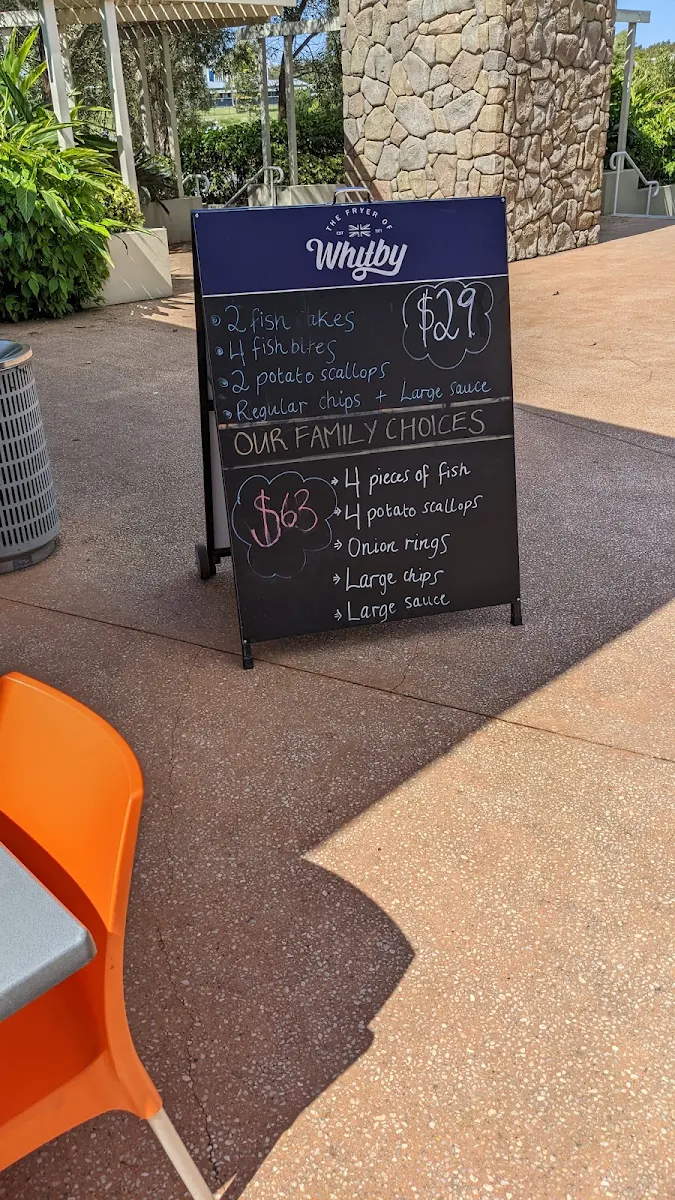 THE FRYER OF
EST
Whitby
2 fish
$29
4 fishbites
2 potato scallops
Regular chips + Large sauce
OUR FAMILY CHOICES
$63
4 pieces of fish
4 potato scallops
Onion rings
Large chips
Large sauce